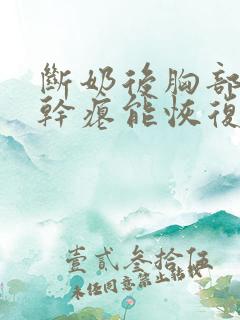 斷奶後胸部
幹癟能恢復
壹貳叁拾伍
未任同意禁止轉載